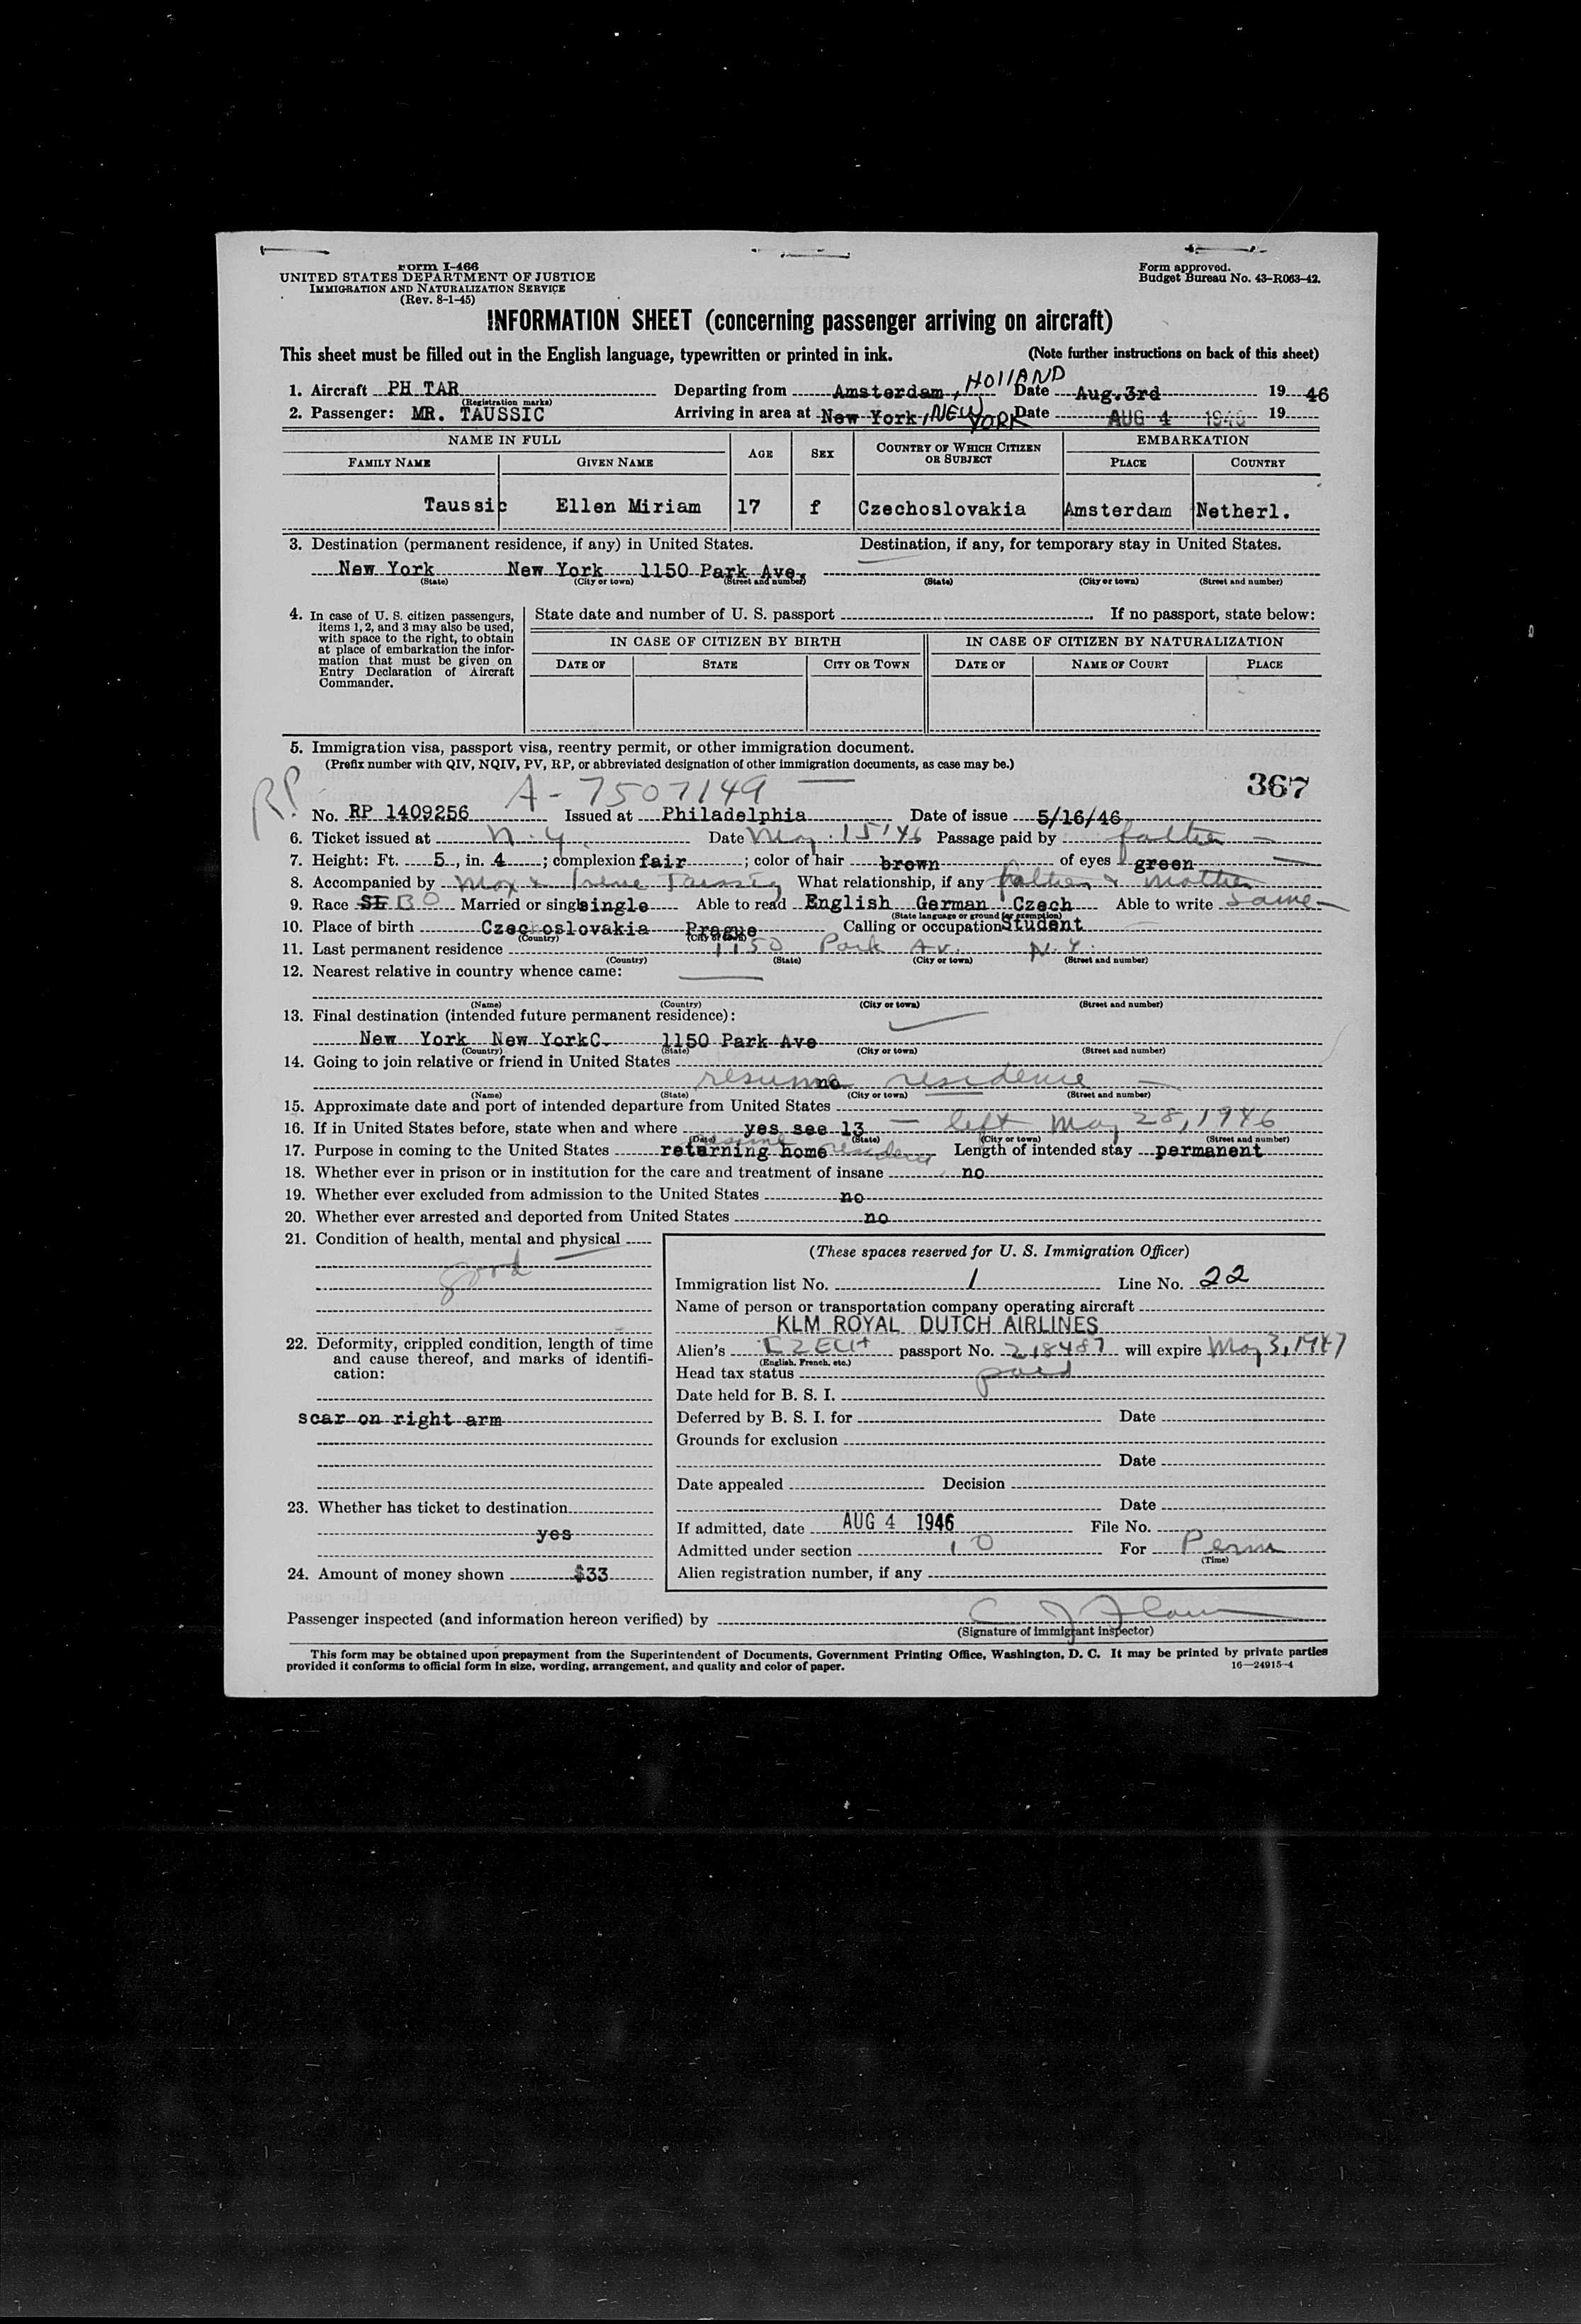 Form I-466
UNITED STATES DEPARTMENT OF JUSTICE
IMMIGRATION AND NATURALIZATION SERVICE
(Rev. 8-1-45)
Form approved.
Budget Bureau No. 43-R063-42.
INFORMATION SHEET (concerning passenger arriving on aircraft)
This sheet must be filled out in the English language, typewritten or printed in ink. (Note further instructions on back of this sheet)
1. Aircraft PH TAR Departing from Amsterdam, HOLLAND Date Aug. 3rd 19 46
(Registration marks)
2. Passenger: MR. TAUSSIC Arriving in area at New York, NEW YORK Date AUG 4 1946 19
NAME IN FULL AGE SEX COUNTRY OF WHICH CITIZEN OR SUBJECT EMBARKATION
FAMILY NAME GIVEN NAME PLACE COUNTRY
Taussic Ellen Miriam 17 f Czechoslovakia Amsterdam Netherl.
3. Destination (permanent residence, if any) in United States. Destination, if any, for temporary stay in United States.
New York New York 1150 Park Ave,
(State) (City or town) (Street and number) (State) (City or town) (Street and number)
4. In case of U. S. citizen passengers, items 1, 2, and 3 may also be used, with space to the right, to obtain at place of embarkation the information that must be given on Entry Declaration of Aircraft Commander.
State date and number of U. S. passport . If no passport, state below:
IN CASE OF CITIZEN BY BIRTH IN CASE OF CITIZEN BY NATURALIZATION
DATE OF STATE CITY OR TOWN DATE OF NAME OF COURT PLACE
5. Immigration visa, passport visa, reentry permit, or other immigration document.
(Prefix number with QIV, NQIV, PV, RP, or abbreviated designation of other immigration documents, as case may be.)
RP A-7507149 367
No. RP 1409256 Issued at Philadelphia Date of issue 5/16/46
6. Ticket issued at N.Y. Date May 15 '46 Passage paid by father
7. Height: Ft. 5, in. 4; complexion fair; color of hair brown of eyes green
8. Accompanied by Max & Irene Taussig What relationship, if any father & mother
9. Race BO Married or single single Able to read English German Czech Able to write same
(State language or ground for exemption)
10. Place of birth Czechoslovakia Prague Calling or occupation Student
(Country) (City or town)
11. Last permanent residence 1150 Park Av. N.Y.
(Country) (State) (City or town) (Street and number)
12. Nearest relative in country whence came:
(Name) (Country) (City or town) (Street and number)
13. Final destination (intended future permanent residence):
New York New YorkC. 1150 Park Ave
(Country) (State) (City or town) (Street and number)
14. Going to join relative or friend in United States
resume no residence
(Name) (State) (City or town) (Street and number)
15. Approximate date and port of intended departure from United States
16. If in United States before, state when and where yes see 13 — left May 28, 1946
(Date) (State) (City or town) (Street and number)
17. Purpose in coming to the United States returning home resume residence Length of intended stay permanent
18. Whether ever in prison or in institution for the care and treatment of insane no
19. Whether ever excluded from admission to the United States no
20. Whether ever arrested and deported from United States no
21. Condition of health, mental and physical
good
22. Deformity, crippled condition, length of time and cause thereof, and marks of identification:
scar on right arm
23. Whether has ticket to destination
yes
24. Amount of money shown $33
(These spaces reserved for U. S. Immigration Officer)
Immigration list No. 1 Line No. 22
Name of person or transportation company operating aircraft
KLM ROYAL DUTCH AIRLINES
Alien's CZECH passport No. 218487 will expire May 3, 1947
(English, French, etc.)
Head tax status paid
Date held for B. S. I.
Deferred by B. S. I. for Date
Grounds for exclusion
Date
Date appealed Decision
Date
If admitted, date AUG 4 1946 File No.
Admitted under section 10 For Perm
(Time)
Alien registration number, if any
Passenger inspected (and information hereon verified) by
(Signature of immigrant inspector)
This form may be obtained upon prepayment from the Superintendent of Documents, Government Printing Office, Washington, D. C. It may be printed by private parties
provided it conforms to official form in size, wording, arrangement, and quality and color of paper. 16—24915-4